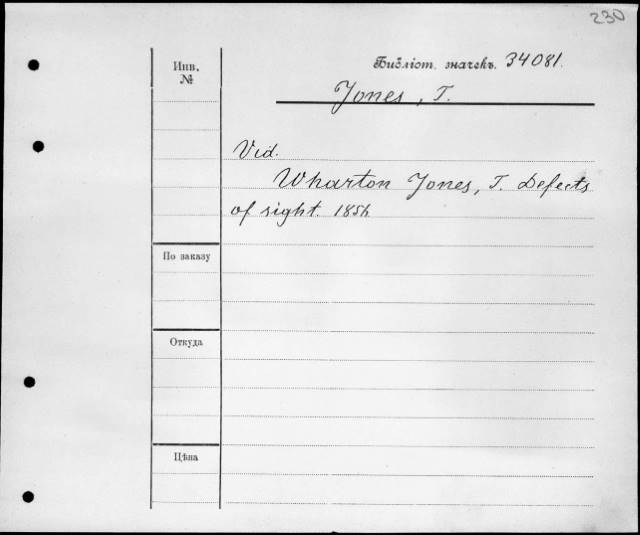 230
Инв.
№
Библіот. значекъ. 34081.
Jones, T.
Vid.
Wharton Jones, T. Defects
of sight. 185
По заказу
Откуда
Цѣна